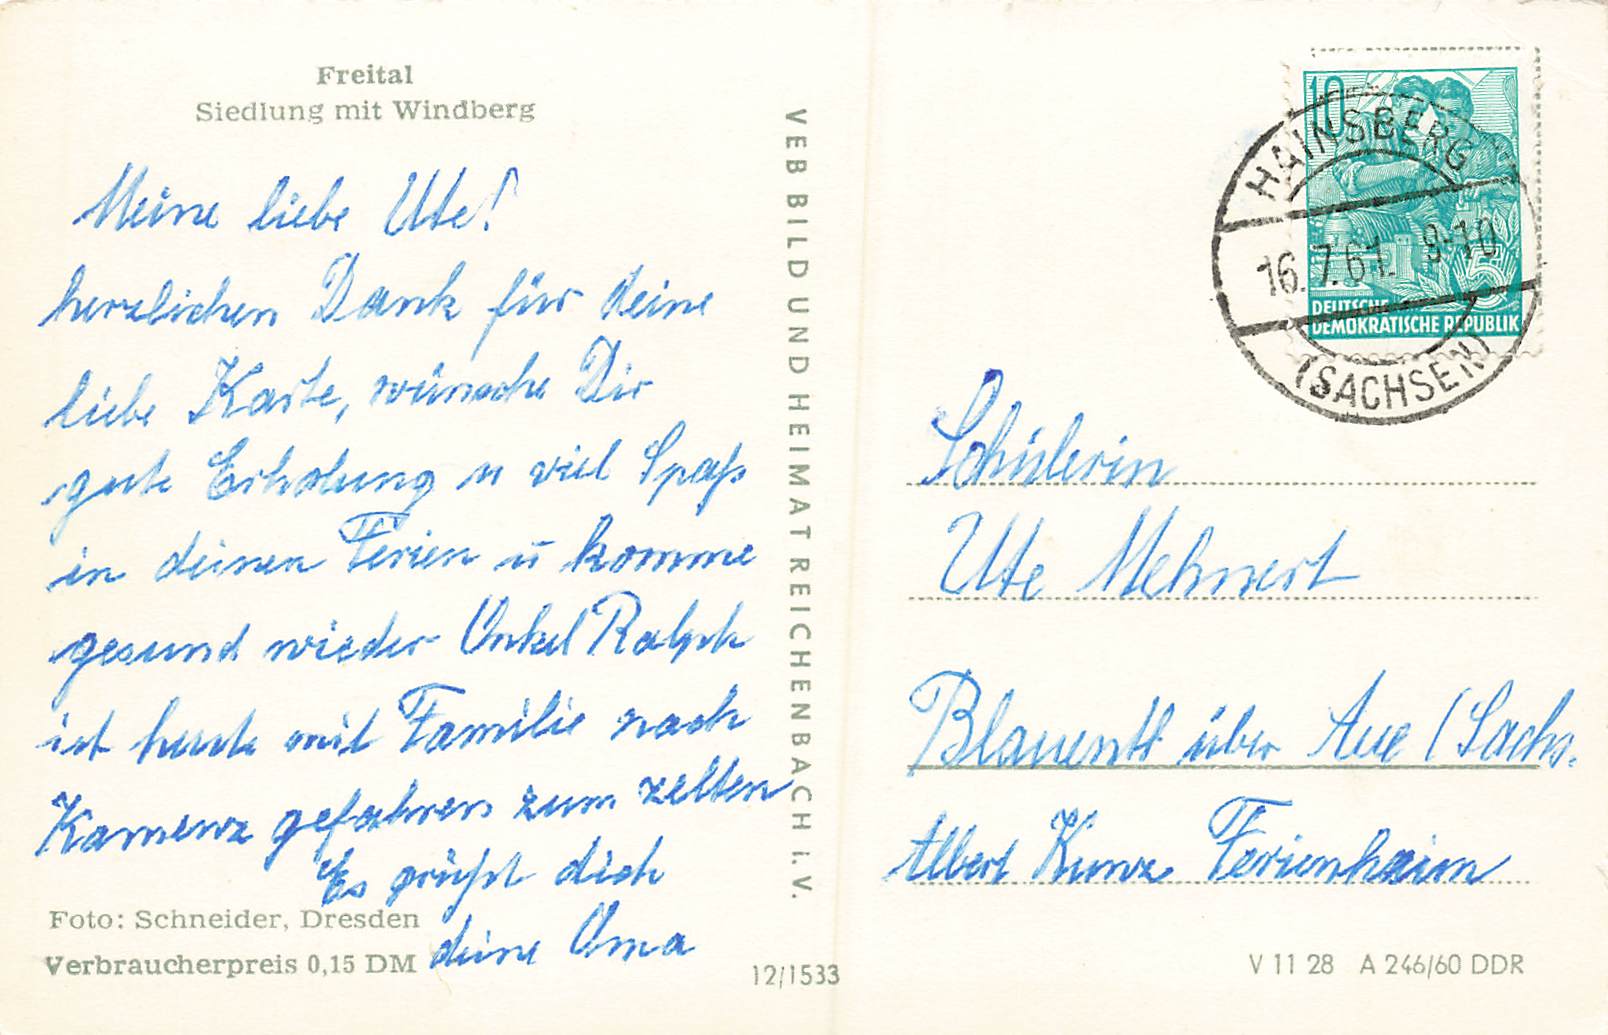 Freital
Siedlung mit Windberg
Meine liebe Ute!
herzlichen Dank für deine
liebe Karte, wünsche Dir
gute Erholung u viel Spaß
in deinen Ferien u komme
gesund wieder Onkel Ralph
ist heute mit Familie nach
Kamenz gefahren zum zelten
Es grüßt dich
deine Oma
Foto: Schneider, Dresden
Verbraucherpreis 0,15 DM
VEB BILD UND HEIMAT REICHENBACH i. V.
12/1533
10
HAINSBERG
16.7.61. 9-10
(SACHSEN)
5
DEUTSCHE
DEMOKRATISCHE REPUBLIK
Schülerin
Ute Mehnert
Blauenth über Aue (Sachs.
Albert Kunz Ferienheim
V 11 28 A 246/60 DDR